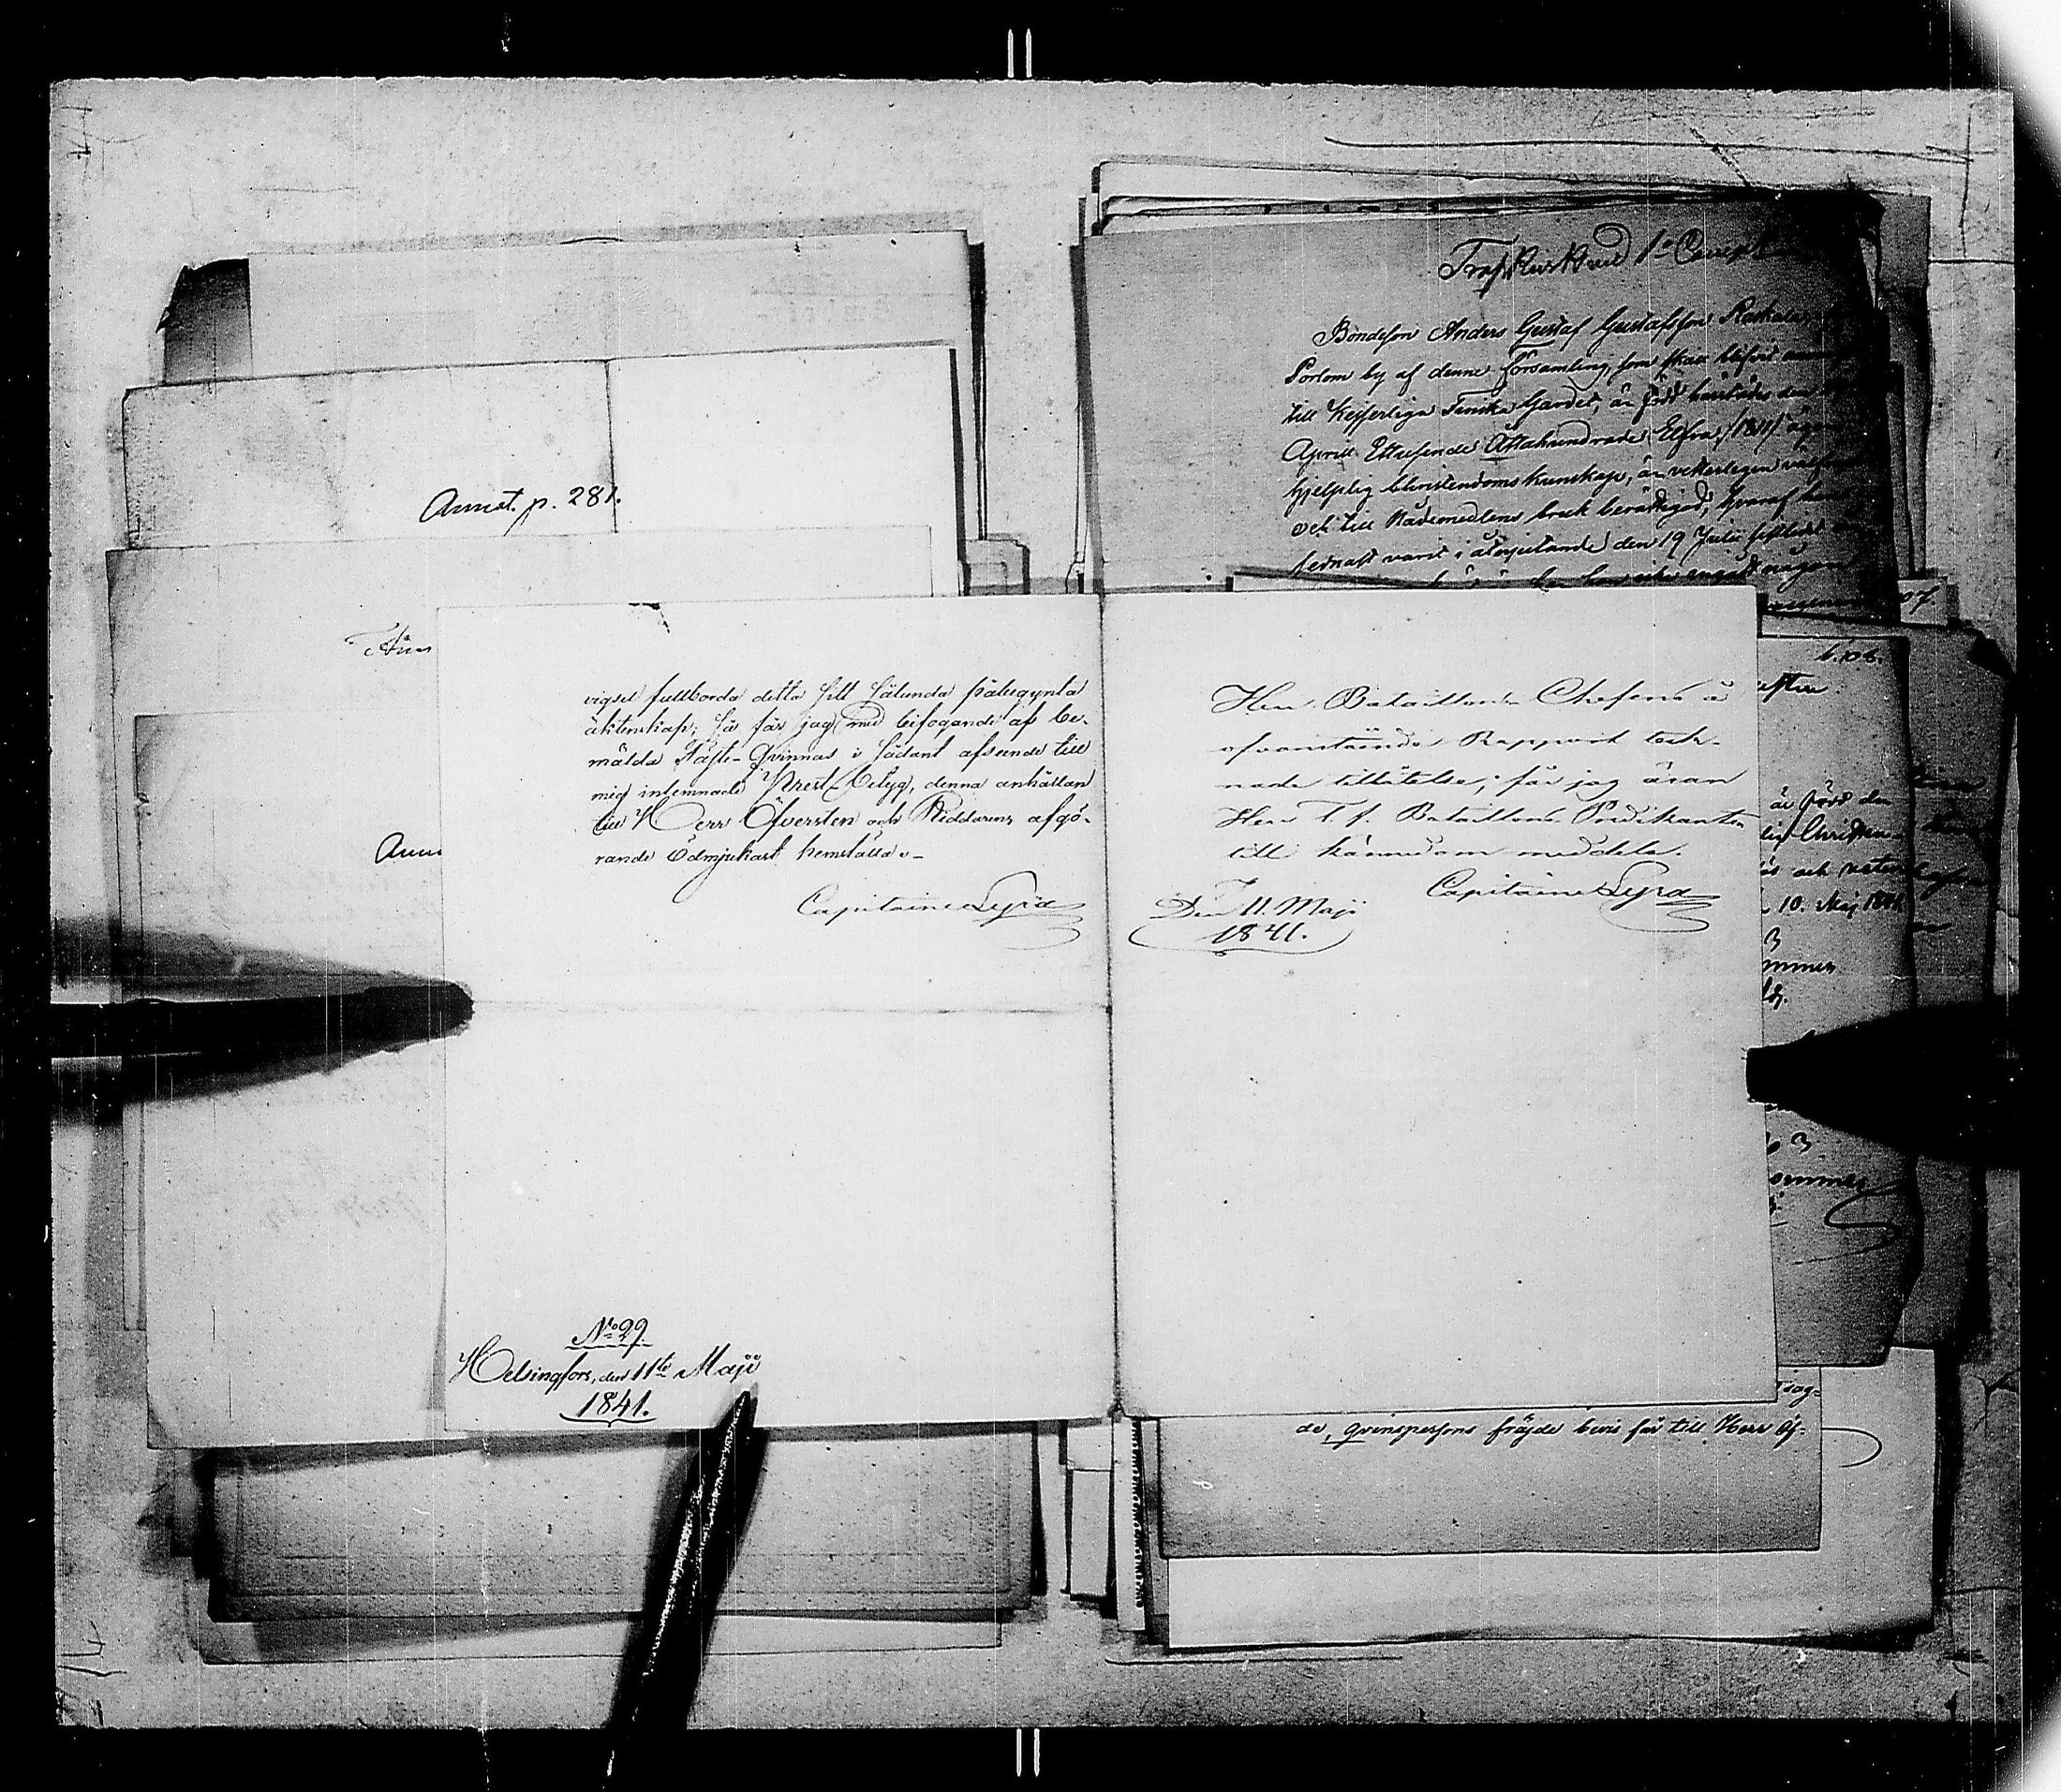 Annot. p. 281.
vigsel fullborda detta sitt sålunda påbegynta
äktenskap; så får jag med bifogande af be-
mälda Fäste-Qvinnas i sådant afseende till
mig inlemnade Prest-Betyg, denna anhållan
till Herr Öfversten och Riddarens afgö-
rande Ödmjukast hemställa.-
Capitaine Lyra
No 29.
Helsingfors, den 11te Maji
1841.
Herr Bataillons Chefens å
ofvanstående Rapport teck-
nade tillåtelse; får jag äran
Herr T. f. Bataillons Predikanten
till kännedom meddela.
Capitaine Lyra
Den 11. Maji
1841.
1a Comp
Bondeson Anders Gustaf Gustafsson
Porlom by af denne församling, som skall blifvit
till Kejserliga Finska Gardet, är född härstädes den
Aprill Ettusende Åttahundrade Elfva /1811/ äger
hjelplig Christendoms kunskap, är vetterligen
och till Nådemedlens bruk berättigad, hvaraf han
sednast varit i åtnjutande den 19 Julii
han icke ingått någon
7.
efter
är född den
lig Christen-
och veterligen
10. Maj
ommer
de, qvinspersons fräjde bevis får till Herr Öf-